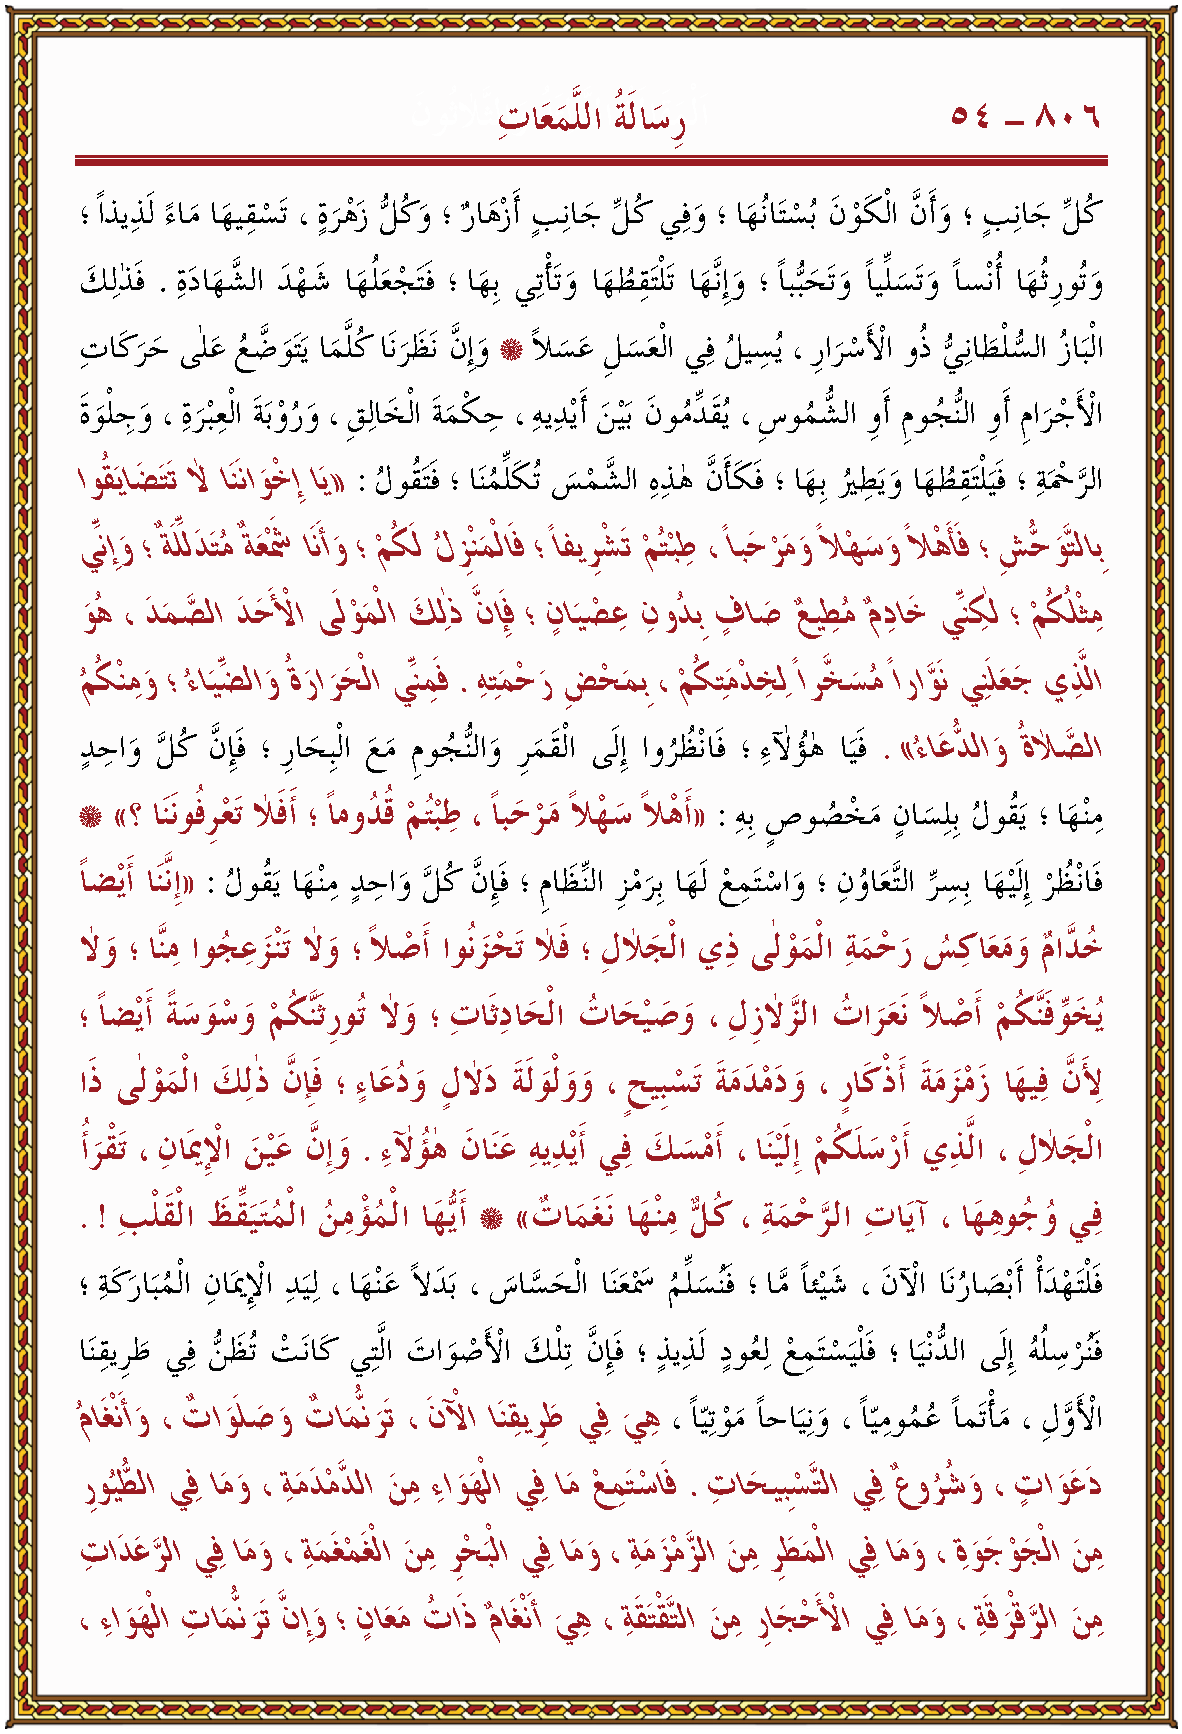 ٨٠٦ ــ ٥٤ رِسَالَةُ اللَّمَعَاتِ
كُلِّ جَانِبٍ ؛ وَأَنَّ الْكَوْنَ بُسْتَانُهَا ؛ وَفِي كُلِّ جَانِبٍ أَزْهَارٌ ؛ وَكُلُّ زَهْرَةٍ ، تَسْقِيهَا مَاءً لَذِيذاً ؛
وَتُورِثُهَا أُنْساً وَتَسَلِّياً وَتَحَبُّباً ؛ وَإِنَّهَا تَلْتَقِطُهَا وَتَأْتِي بِهَا ؛ فَتَجْعَلُهَا شَهْدَ الشَّهَادَةِ . فَذٰلِكَ
الْبَازُ السُّلْطَانِيُّ ذُو الْأَسْرَارِ ، يُسِيلُ فِي الْعَسَلِ عَسَلاً ۞ وَإِنَّ نَظَرَنَا كُلَّمَا يَتَوَضَّعُ عَلٰى حَرَكَاتِ
الْأَجْرَامِ أَوِ النُّجُومِ أَوِ الشُّمُوسِ ، يُقَدِّمُونَ بَيْنَ أَيْدِيهِ ، حِكْمَةَ الْخَالِقِ ، وَرُوْبَةَ الْعِبْرَةِ ، وَجِلْوَةَ
الرَّحْمَةِ ؛ فَيَلْتَقِطُهَا وَيَطِيرُ بِهَا ؛ فَكَأَنَّ هٰذِهِ الشَّمْسَ تُكَلِّمُنَا ؛ فَتَقُولُ : «يَا إِخْوَانَنَا لَا تَتَضَايَقُوا
بِالتَّوَحُّشِ ؛ فَأَهْلاً وَسَهْلاً وَمَرْحَباً ، طِبْتُمْ تَشْرِيفاً ؛ فَالْمَنْزِلُ لَكُمْ ؛ وَأَنَا شَمْعَةٌ مُتَدَلِّلَةٌ ؛ وَإِنِّي
مِثْلُكُمْ ؛ لٰكِنِّي خَادِمٌ مُطِيعٌ صَافٍ بِدُونِ عِصْيَانٍ ؛ فَإِنَّ ذٰلِكَ الْمَوْلَى الْأَحَدَ الصَّمَدَ ، هُوَ
الَّذِي جَعَلَنِي نَوَّاراً مُسَخَّراً لِخِدْمَتِكُمْ ، بِمَحْضِ رَحْمَتِهِ . فَمِنِّي الْحَرَارَةُ وَالضِّيَاءُ ؛ وَمِنْكُمُ
الصَّلَاةُ وَالدُّعَاءُ» . فَيَا هٰؤُلَآءِ ؛ فَانْظُرُوا إِلَى الْقَمَرِ وَالنُّجُومِ مَعَ الْبِحَارِ ؛ فَإِنَّ كُلَّ وَاحِدٍ
مِنْهَا ؛ يَقُولُ بِلِسَانٍ مَخْصُوصٍ بِهِ : «أَهْلاً سَهْلاً مَرْحَباً ، طِبْتُمْ قُدُوماً ؛ أَفَلَا تَعْرِفُونَنَا ؟» ۞
فَانْظُرْ إِلَيْهَا بِسِرِّ التَّعَاوُنِ ؛ وَاسْتَمِعْ لَهَا بِرَمْزِ النِّظَامِ ؛ فَإِنَّ كُلَّ وَاحِدٍ مِنْهَا يَقُولُ : «إِنَّنَا أَيْضاً
خُدَّامٌ وَمَعَاكِسُ رَحْمَةِ الْمَوْلٰى ذِي الْجَلَالِ ؛ فَلَا تَحْزَنُوا أَصْلاً ؛ وَلَا تَنْزَعِجُوا مِنَّا ؛ وَلَا
يُخَوِّفَنَّكُمْ أَصْلاً نَعَرَاتُ الزَّلَازِلِ ، وَصَيْحَاتُ الْحَادِثَاتِ ؛ وَلَا تُورِثَنَّكُمْ وَسْوَسَةً أَيْضاً ؛
لِأَنَّ فِيهَا زَمْزَمَةَ أَذْكَارٍ ، وَدَمْدَمَةَ تَسْبِيحٍ ، وَوَلْوَلَةَ دَلَالٍ وَدُعَاءٍ ؛ فَإِنَّ ذٰلِكَ الْمَوْلٰى ذَا
الْجَلَالِ ، الَّذِي أَرْسَلَكُمْ إِلَيْنَا ، أَمْسَكَ فِي أَيْدِيهِ عَنَانَ هٰؤُلَآءِ . وَإِنَّ عَيْنَ الْإِيمَانِ ، تَقْرَأُ
فِي وُجُوهِهَا ، آيَاتِ الرَّحْمَةِ ، كُلٌّ مِنْهَا نَغَمَاتٌ» ۞ أَيُّهَا الْمُؤْمِنُ الْمُتَيَقِّظَ الْقَلْبِ ! .
فَلْتَهْدَأْ أَبْصَارُنَا الْآنَ ، شَيْئاً مَّا ؛ فَنُسَلِّمُ سَمْعَنَا الْحَسَّاسَ ، بَدَلاً عَنْهَا ، لِيَدِ الْإِيمَانِ الْمُبَارَكَةِ ؛
فَنُرْسِلُهُ إِلَى الدُّنْيَا ؛ فَلْيَسْتَمِعْ لِعُودٍ لَذِيذٍ ؛ فَإِنَّ تِلْكَ الْأَصْوَاتَ الَّتِي كَانَتْ تُظَنُّ فِي طَرِيقِنَا
الْأَوَّلِ ، مَأْتَماً عُمُومِيّاً ، وَنِيَاحاً مَوْتِيّاً ، هِيَ فِي طَرِيقِنَا الْآنَ ، تَرَنُّمَاتٌ وَصَلَوَاتٌ ، وَأَنْغَامُ
دَعَوَاتٍ ، وَشُرُوعٌ فِي التَّسْبِيحَاتِ . فَاسْتَمِعْ مَا فِي الْهَوَاءِ مِنَ الدَّمْدَمَةِ ، وَمَا فِي الطُّيُورِ
مِنَ الْجَوْجَوَةِ ، وَمَا فِي الْمَطَرِ مِنَ الزَّمْزَمَةِ ، وَمَا فِي الْبَحْرِ مِنَ الْغَمْغَمَةِ ، وَمَا فِي الرَّعَدَاتِ
مِنَ الرَّقْرَقَةِ ، وَمَا فِي الْأَحْجَارِ مِنَ التَّقْتَقَةِ ، هِيَ أَنْغَامٌ ذَاتُ مَعَانٍ ؛ وَإِنَّ تَرَنُّمَاتِ الْهَوَاءِ ،